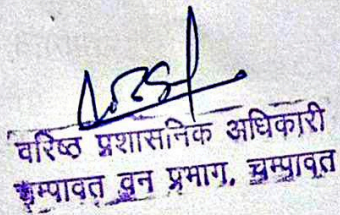 वरिष्ठ प्रशासनिक अधिकारी
चम्पावत वन प्रभाग, चम्पावत